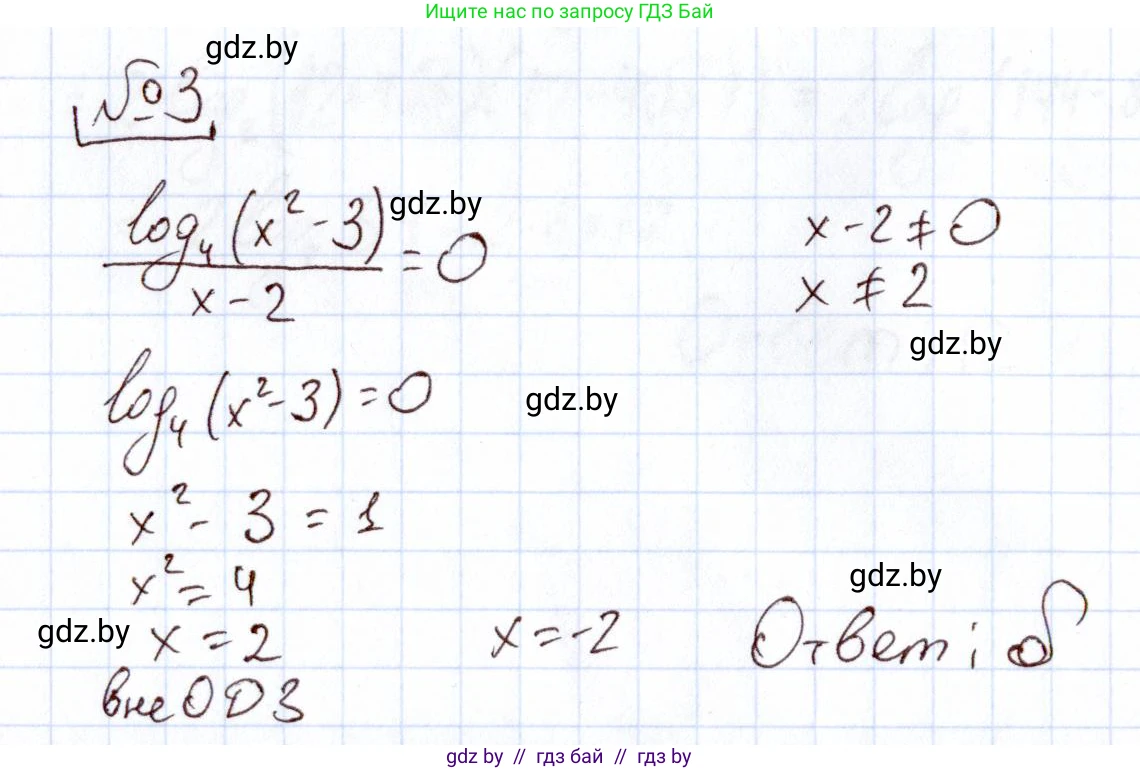 Ищите нас по запросу ГДЗ Бай
gdz.by
№3
log₄(x² - 3) / (x - 2) = 0
gdz.by
x - 2 ≠ 0
x ≠ 2
gdz.by
log₄(x² - 3) = 0
gdz.by
x² - 3 = 1
x² = 4
gdz.by
gdz.by
x = 2
x = -2
Ответ: б
вне ОДЗ
gdz by // гдз бай // гдз by